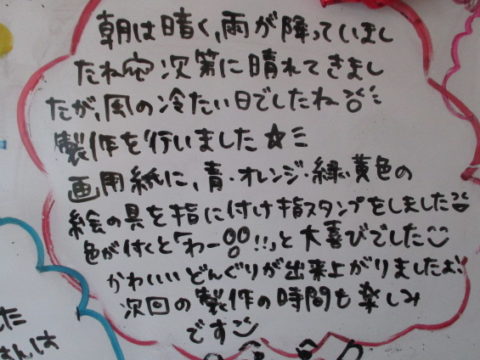 朝は暗く、雨が降っていまし
たね 次第に晴れてきまし
たが、風の冷たい日でしたね
製作を行いました☆
画用紙に、青・オレンジ・緑・黄色の
絵の具を指に付け指スタンプをしました
色が付くと「わー!!」と大喜びでした
かわいいどんぐりが出来上がりましたよ
次回の製作の時間も楽しみ
です
した
さんは